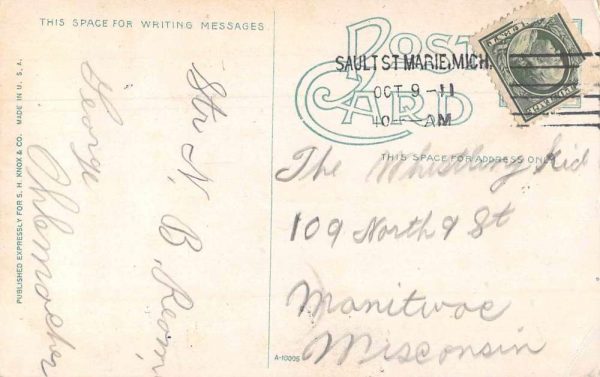 THIS SPACE FOR WRITING MESSAGES
POST CARD
SAULT ST MARIE, MICH.
OCT 9 - 11
10 - AM
THIS SPACE FOR ADDRESS ONLY
The Whistling Kid
109 North 9 St
Manitwoc
Wisconsin
Str N. B. Ream,
George
PUBLISHED EXPRESSLY FOR S. H. KNOX & CO. MADE IN U. S. A.
A-10005